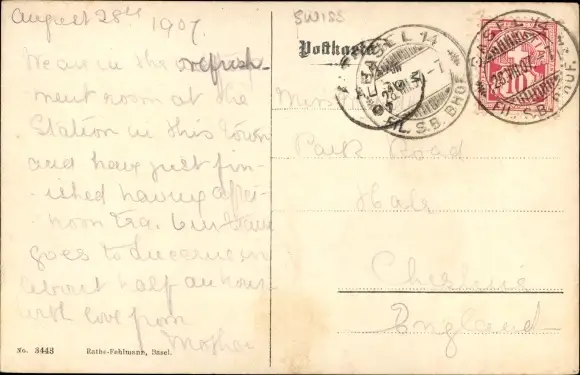 August 28th 1907
SWISS
We are in the refresh-
ment room at the
Station in this town
and have just fin-
ished having after-
noon tea. Our train
goes to Lucerne in
about half an hour
with love from
Mother
No. 3443 Rathe-Fehlmann, Basel.
Postkarte
BASEL 14
FIL. S.B. BHOF.
BASEL 14
FIL. S.B. BHOF.
10
Miss
Park Road
Hale
Cheshire
England